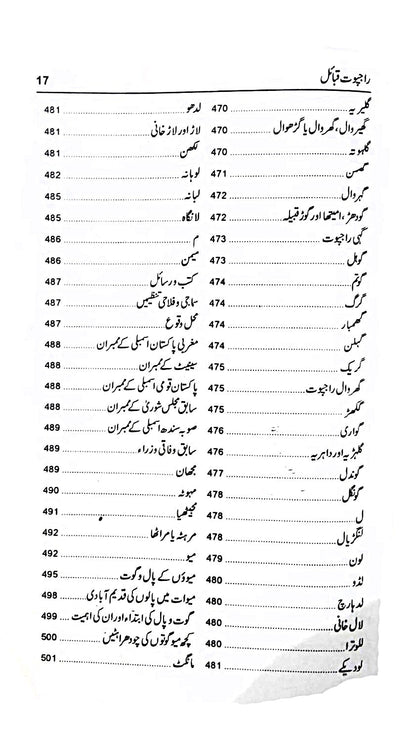 راجپوت قبائل 17
گلیریہ 470
گھیروال، گھروال یا گڑھوال 470
گلہوتہ 470
گھسن 471
گہروال 472
گودھڑ، امیتھا اور گوڑ قبیلہ 472
گہی راجپوت 473
گوہل 473
گوتم 474
گرگ 474
گھمبار 474
گہلن 474
گریک 475
گھروال راجپوت 475
گکھڑ 475
گواری 476
گلہڑیہ اور داہریہ 476
گوندل 477
گونگل 478
ل 478
لنگڑیال 478
لون 479
لڈو 480
لدہارچ 480
لال خانی 480
لکوترا 480
لودیکے 481
لدھو 481
لاڑ اور لاڑ خانی 481
لکھن 481
لوہانہ 482
لبانہ 485
لانگاہ 485
م 486
میمن 486
کتب و رسائل 487
سماجی و فلاحی تنظیمیں 487
محل وقوع 487
مغربی پاکستان اسمبلی کے ممبران 488
سینیٹ کے ممبران 488
پاکستان قومی اسمبلی کے ممبران 488
سابق مجلس شوریٰ کے ممبران 488
صوبہ سندھ اسمبلی کے ممبران 489
سابق وفاقی وزراء 489
مجھان 489
مہوٹہ 490
مجیٹھیا 491
مرہٹہ یا مراٹھا 492
میو 492
میوؤں کے پال و گوت 495
میوات میں پالوں کی قدیم آبادی 498
گوت و پال کی ابتداء اور ان کی اہمیت 499
کچھ میو گوتوں کی چودھراہٹیں 500
مانگٹ 501